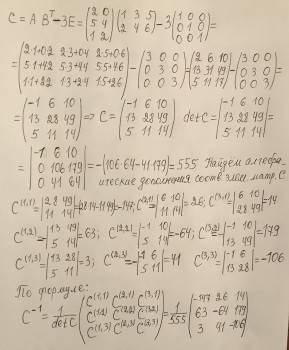 C = A B^T - 3E = (2 0; 5 4; 1 2) (1 3 5; 2 4 6) - 3 (1 0 0; 0 1 0; 0 0 1) =
= (2·1+0·2 2·3+0·4 2·5+0·6; 5·1+4·2 5·3+4·4 5·5+4·6; 1·1+2·2 1·3+2·4 1·5+2·6) - (3 0 0; 0 3 0; 0 0 3) = (2 6 10; 13 31 49; 5 11 17) - (3 0 0; 0 3 0; 0 0 3) =
= (-1 6 10; 13 28 49; 5 11 14) ⇒ C = (-1 6 10; 13 28 49; 5 11 14) det C = |-1 6 10; 13 28 49; 5 11 14| =
= |-1 6 10; 0 106 179; 0 41 64| = -(106·64-41·179) = 555 Найдем алгебра-
ические дополнения соотв. элем. матр. C
C^(1,1) = |28 49; 11 14| = (28·14-11·49) = -147; C^(2,1) = -|6 10; 11 14| = 26; C^(3,1) = |6 10; 28 49| = 14
C^(1,2) = -|13 49; 5 14| = 63; C^(2,2) = |-1 10; 5 14| = -64; C^(3,2) = -|-1 10; 13 49| = 179
C^(1,3) = |13 28; 5 11| = 3; C^(2,3) = -|-1 6; 5 11| = 41 C^(3,3) = |-1 6; 13 28| = -106
По формуле:
C^-1 = 1/det C (C^(1,1) C^(2,1) C^(3,1); C^(1,2) C^(2,2) C^(3,2); C^(1,3) C^(2,3) C^(3,3)) = 1/555 (-147 26 14; 63 -64 179; 3 41 -106)